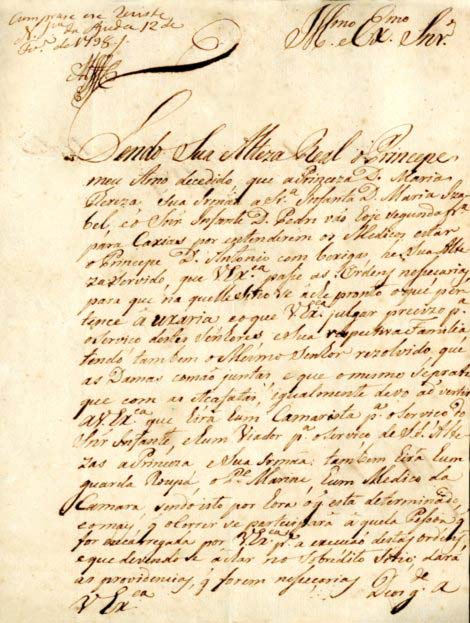 Cumprase e se Reziste
N. Sra da Ajuda 12 de
de 1798
Illmo e Exmo Snr.
Sendo Sua Alteza Real o Principe
meu Amo decedido, que a Princeza D. Maria
Tereza, Sua Irmãa a Sra Infanta D. Maria Iza
bel, e o Snr Infante D. Pedro vão oje segunda fra
para Caxias por entenderem os Medicos, estar
o Principe D. Antonio com bexigas, he Sua Alte
za servido, que V Exca passe as Ordens nesesarias,
para que na quelle Sitio se áche pronto o que per
tence à uxaria e o que V Exca julgar precizo pa
o Serviço destes Senhores, e Sua respectiva Familia
tendo tambem o Mesmo Senhor rezolvido, que
as Damas comão juntas, e que o mesmo se pratique
que com as Açafatas; igualmente devo adevertir
a V. Exca que Eirá Eum Camarista pa o Serviço do
Snr Infante, e Eum Viador pa o Serviço de S.S. Alte
zas a Princeza e Sua Irmãa: tambem Eirá Eum
guarda Roupa o Marene, Eum Medico da
Camara, sendo isto por Eora o q está determinado,
e o mais, q ocorrer se participará à quela Pessoa, q
for encarregada por V Exca pa a execução destas ordens
e que devendo se áchar no Sobredito Sitio, dará
as providencias, q forem nesecarias Deos gde a
V Exca